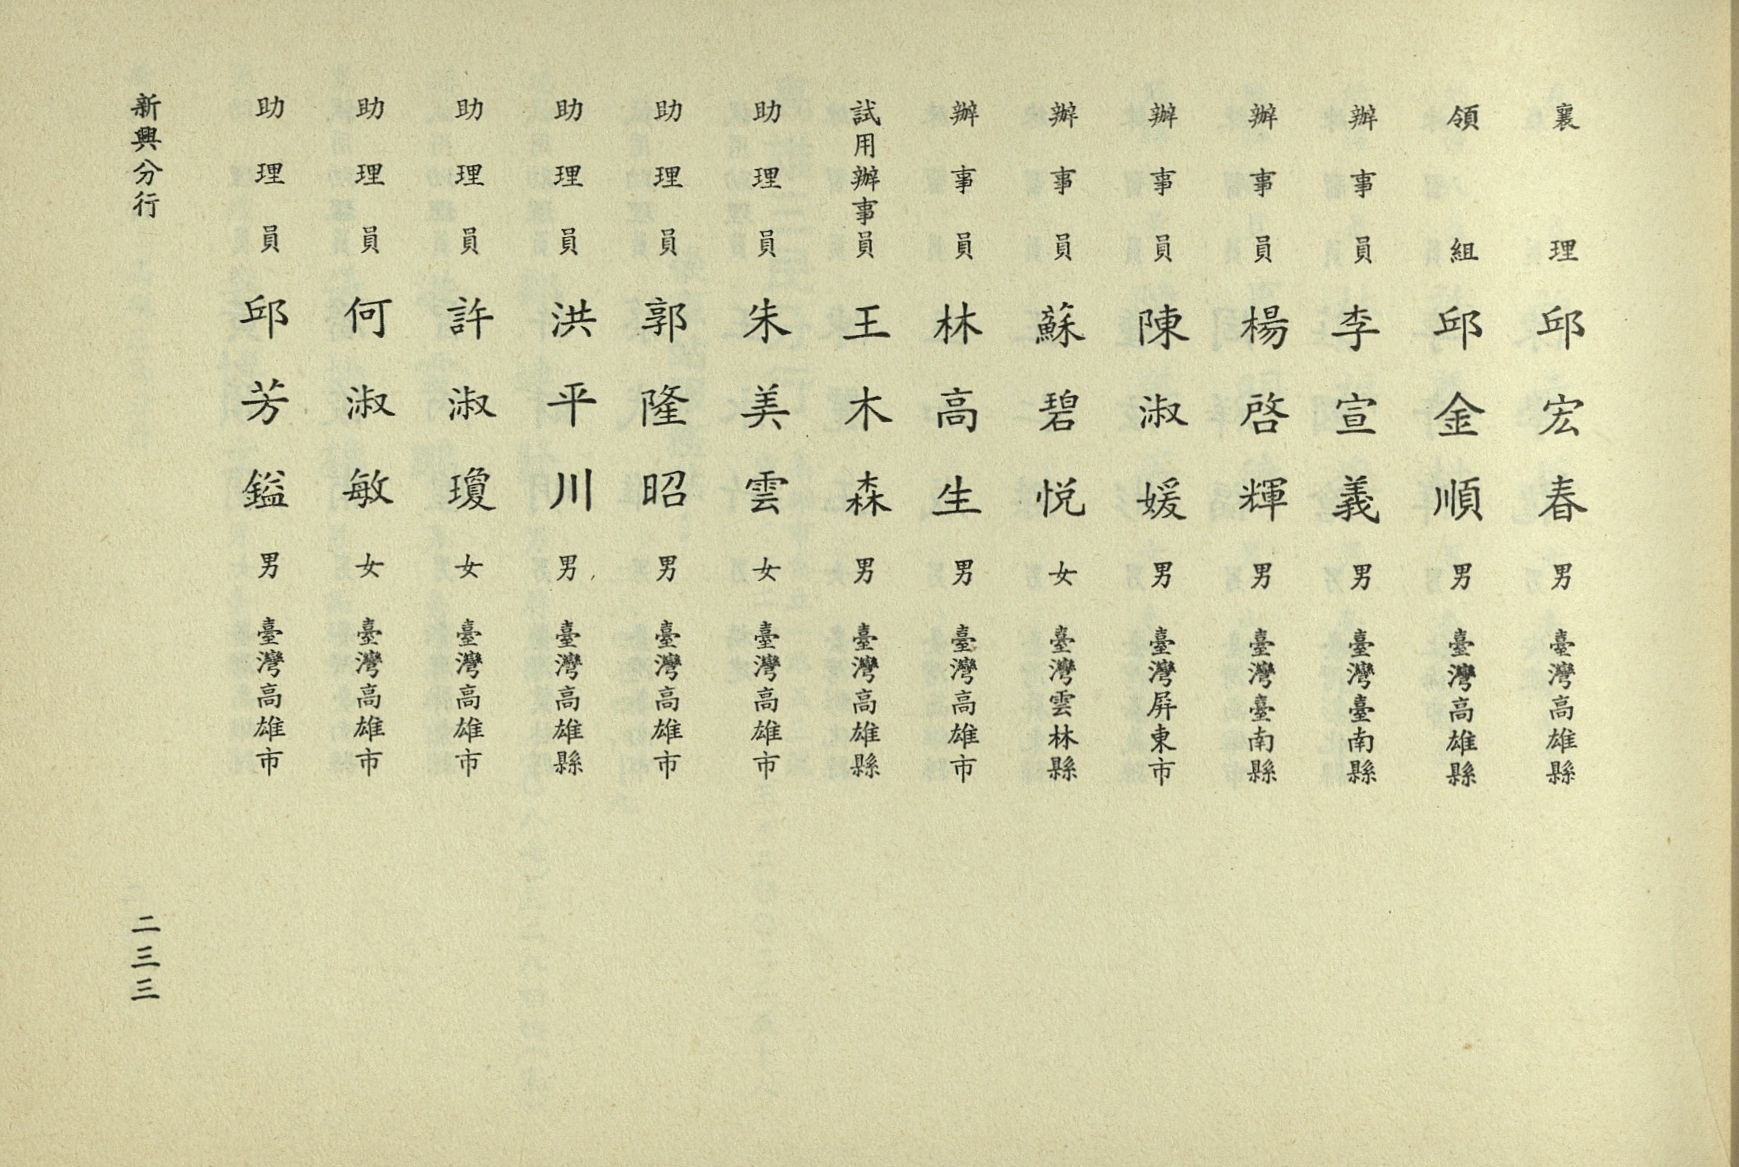 襄理 邱宏春 男 臺灣高雄縣
領組 邱金順 男 臺灣高雄縣
辦事員 李宣義 男 臺灣臺南縣
辦事員 楊啓輝 男 臺灣臺南縣
辦事員 陳淑媛 男 臺灣屏東市
辦事員 蘇碧悅 女 臺灣雲林縣
辦事員 林高生 男 臺灣高雄市
試用辦事員 王木森 男 臺灣高雄縣
助理員 朱美雲 女 臺灣高雄市
助理員 郭隆昭 男 臺灣高雄市
助理員 洪平川 男 臺灣高雄縣
助理員 許淑瓊 女 臺灣高雄市
助理員 何淑敏 女 臺灣高雄市
助理員 邱芳鎰 男 臺灣高雄市
新興分行
二三三